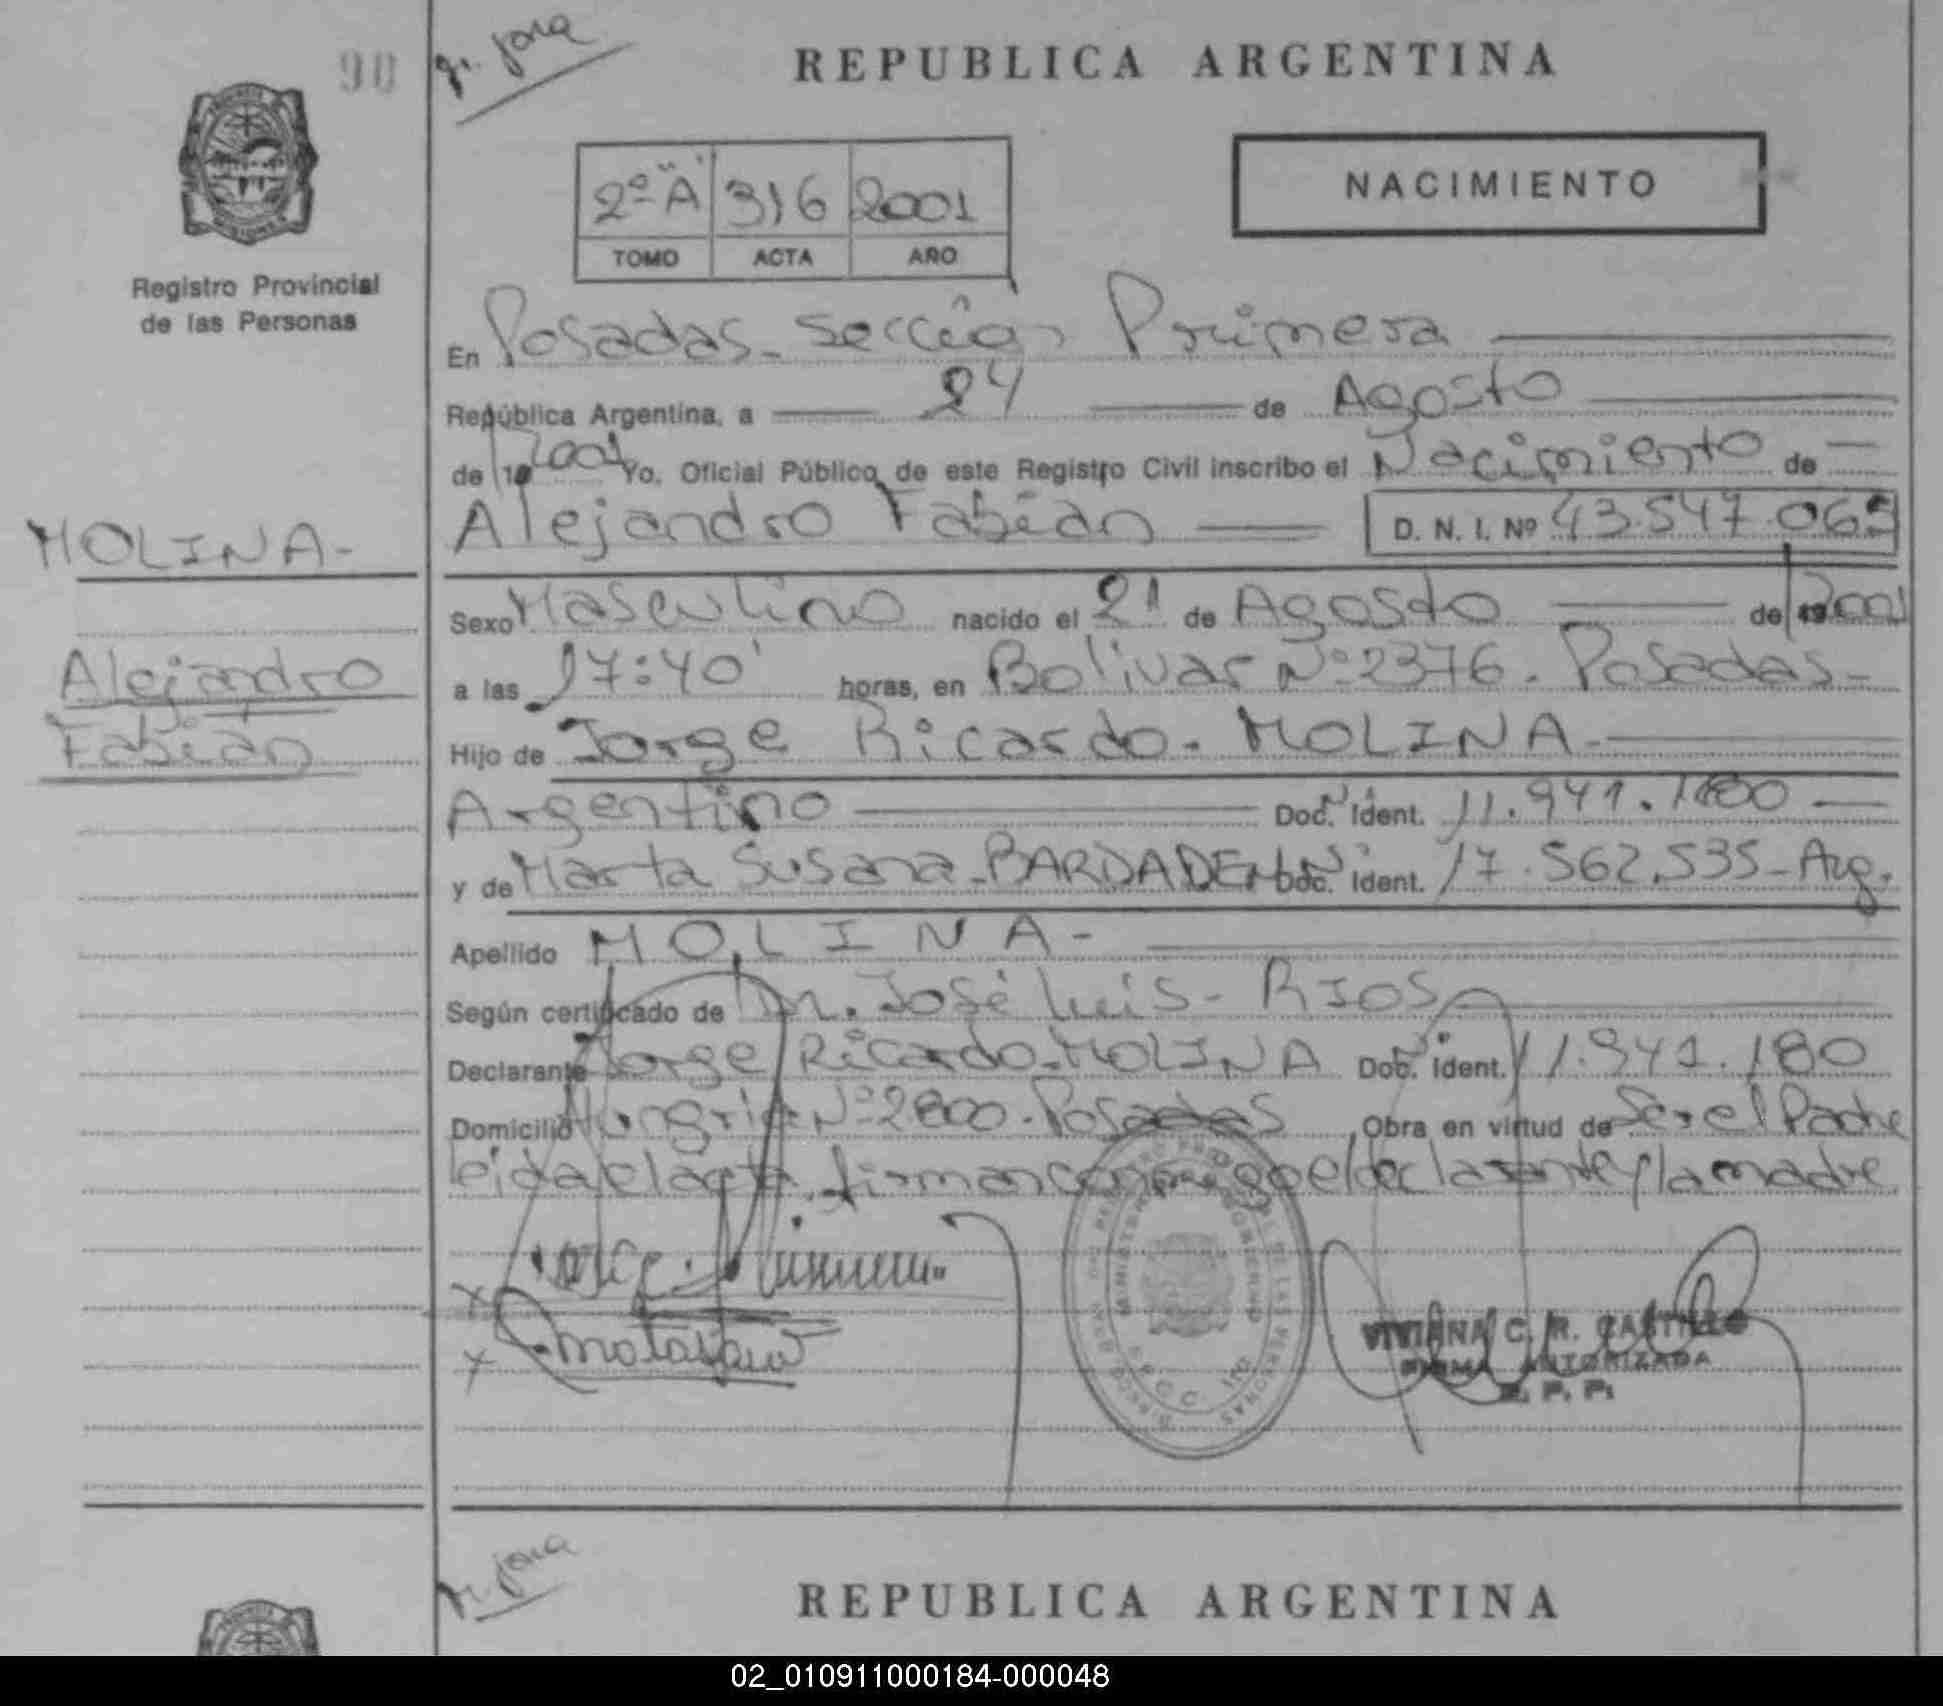 90
REPUBLICA ARGENTINA
2º "A" 316 2001
TOMO ACTA AÑO
NACIMIENTO
Registro Provincial
de las Personas
En Posadas - Sección Primera
República Argentina, a 24 de Agosto
de 19 2001 Yo, Oficial Público de este Registro Civil inscribo el Nacimiento de
MOLINA-
Alejandro Fabián D. N. I. Nº 43.547.065
Sexo Masculino nacido el 21 de Agosto de 19 2001
Alejandro
Fabián
a las 17:40' horas, en Bolivar Nº 2376. Posadas-
Hijo de Jorge Ricardo - MOLINA-
Argentino Doc. Ident. 11.941.180
y de Marta Susana - Doc. Ident. 17.562.535 - Arg.
Apellido MOLINA-
Según certificado de Dr. José Luis - RIOS
Declarante Jorge Ricardo - MOLINA Doc. Ident. 11.941.180
Domicilio Hungria Nº 2800 - Posadas Obra en virtud de Ser el Padre
leida el acta, firman conmigo el declarante y la madre
VIVIANA C. R. CASTILLO
FIRMA AUTORIZADA
R. P. P.
REPUBLICA ARGENTINA
02_010911000184-000048